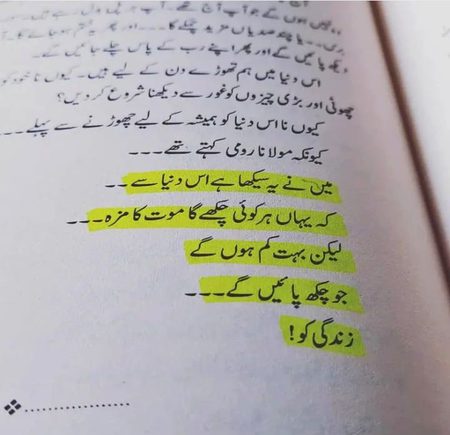 بری۔۔۔ یا چند صدیاں مزید چمکے گا۔۔۔ اور پھر
دیکھ پائیں گے اور پھر اپنے رب کے پاس چلے جائیں گے۔
اس دنیا میں ہم تھوڑے دن کے لیے ہیں۔ کیوں نا خود کو
چھوٹی اور بڑی چیزوں کو غور سے دیکھنا شروع کر دیں؟
کیوں نا اس دنیا کو ہمیشہ کے لیے چھوڑنے سے پہلے۔۔۔
کیونکہ مولانا رومی کہتے تھے۔۔۔
میں نے یہ سیکھا ہے اس دنیا سے۔۔
کہ یہاں ہر کوئی چکھے گا موت کا مزہ۔۔۔
لیکن بہت کم ہوں گے
جو چکھ پائیں گے۔۔۔
زندگی کو!